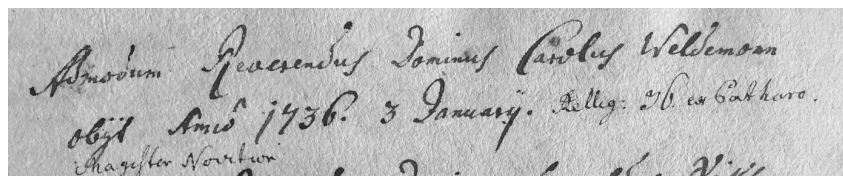 Admodum Reverendus Dominus Carolus Weldemann
obÿt Anno 1736. 3 Januarÿ. Relleg: 36. ex Catharo.
Magister Novitior